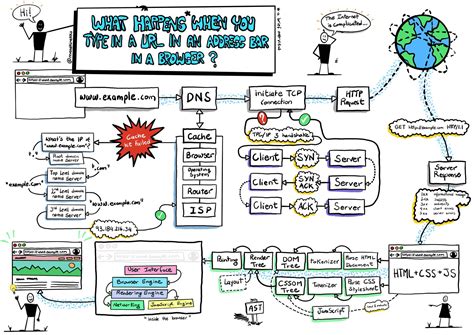 Hi!
WHAT HAPPENS WHEN YOU
TYPE IN A URL IN AN ADDRESS BAR
IN A BROWSER?
The Internet is
Complicated...
www.example.com
DNS
Initiate TCP
Connection
HTTP
Request
What's the IP of
"www.example.com"?
Cache
Hit failed
TCP/IP 3 handshake
Root domain
name server
".com"
Top Level domain
name server
"example.com"
2nd Level domain
name Server
"www.example.com"
3rd Level domain
name Server
93.184.216.34
Cache
Browser
Operating
System
Router
ISP
Client
SYN
Server
Client
SYN
ACK
Server
Client
ACK
Server
Server
Response
HTML+CSS+JS
Parse HTML
Document
Tokenizer
DOM
Tree
Render
Tree
Painting
Layout
Parse CSS
Stylesheet
Tokenizer
CSSOM
Tree
JavaScript
AST
User Interface
Browser Engine
Rendering Engine
Networking
JavaScript Engine
"inside the browser"